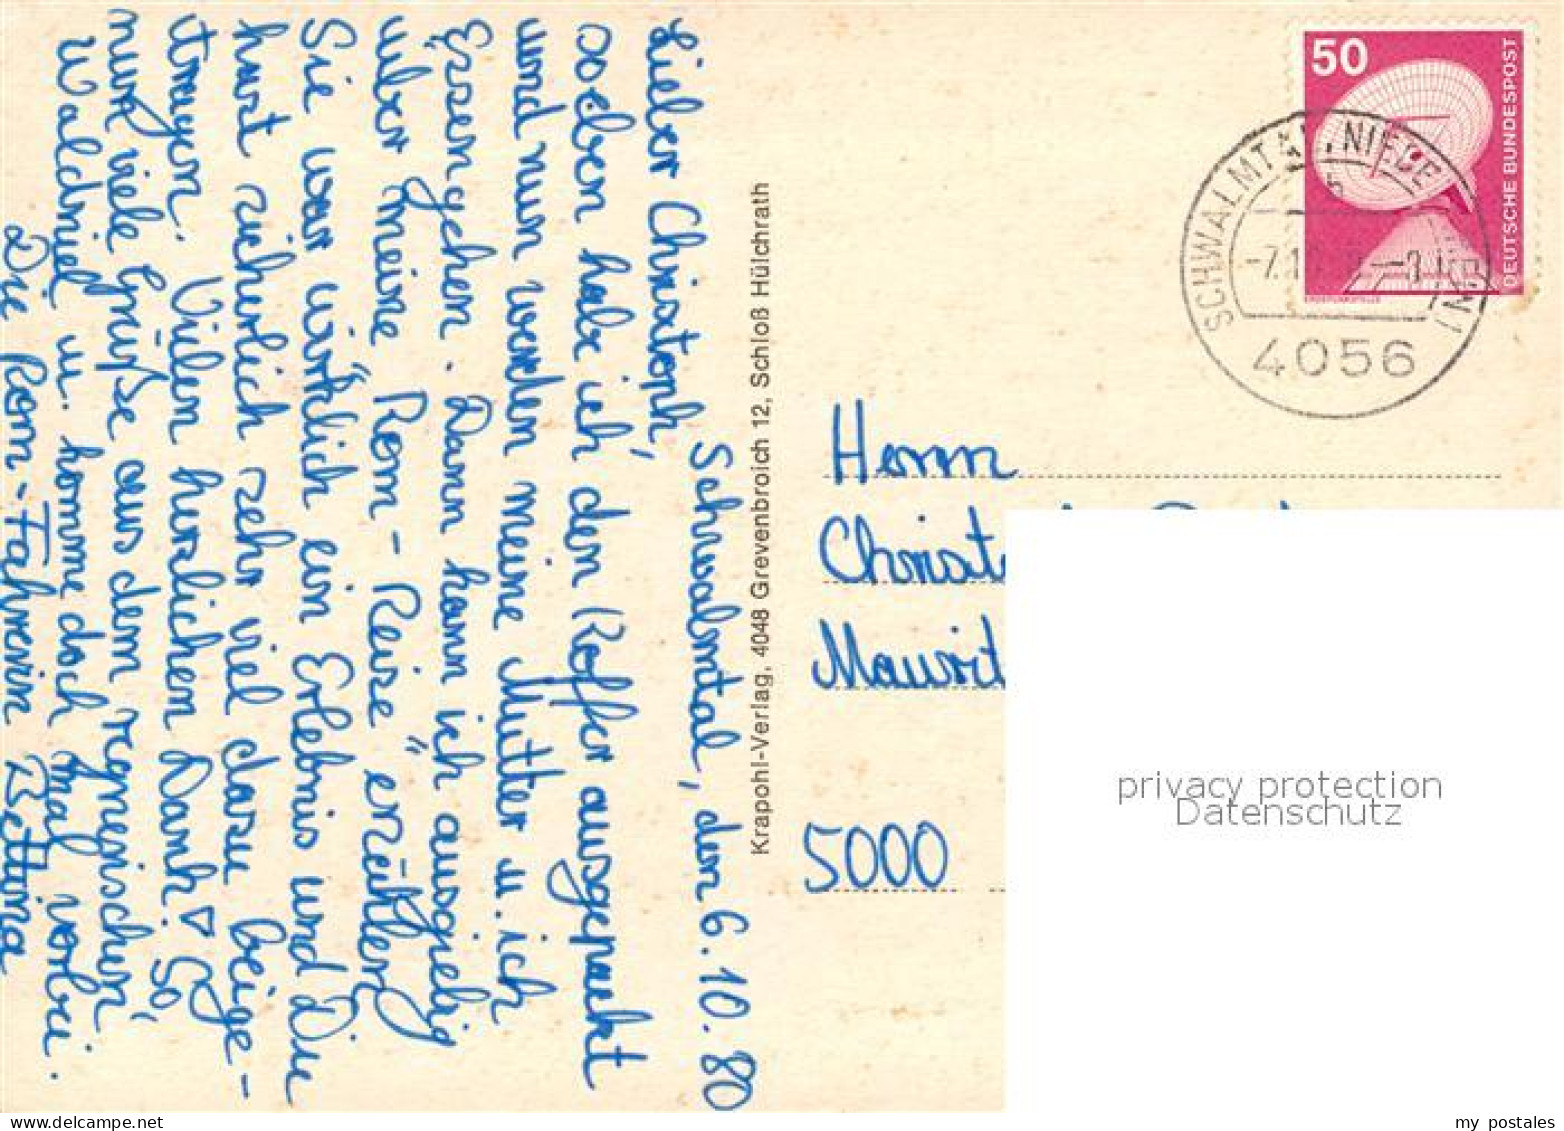 Schwalmtal, den 6.10.80
Lieber Christoph,
soeben habe ich den Koffer ausgepackt
und nun werden meine Mutter u. ich
Essengehen. Dann kann ich ausgiebig
über "meine Rom-Reise" erzählen.
Sie war wirklich ein Erlebnis und Du
hast sicherlich sehr viel dazu beige-
tragen. Vielen herzlichen Dank! So,
nun viele Grüße aus dem regnerischen
Waldniel u. komme doch mal vorbei.
Die Rom-Fahrerin Bettina
Krapohl-Verlag, 4048 Grevenbroich 12, Schloß Hülchrath
50
DEUTSCHE BUNDESPOST
SCHWALMTAL
4056
Herrn
5000
privacy protection
Datenschutz
my postales